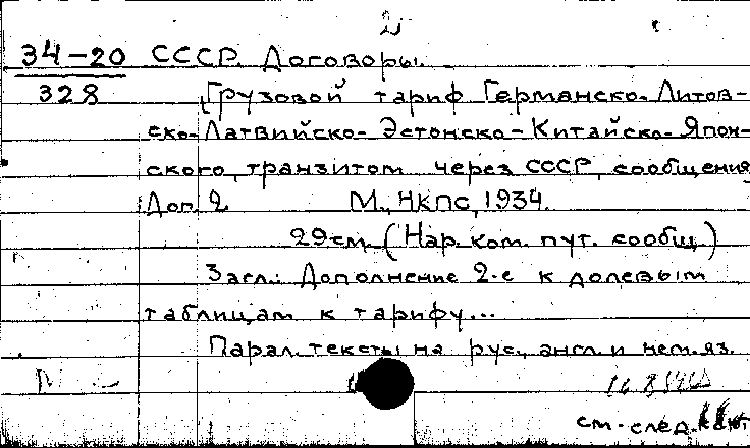 2
34-20 СССР. Договоры.
328 [Грузовой тариф Германско-Литов-
ско-Латвийско-Эстонско-Китайско-Япон-
ского, транзитом через СССР, сообщения
Доп. 2 М., НКПС, 1934.
29см. (Нар. ком. пут. сообщ.)
Загл.: Дополнение 2-е к долевым
таблицам к тарифу...
Парал. тексты на рус., англ. и нем. яз.
см. след.